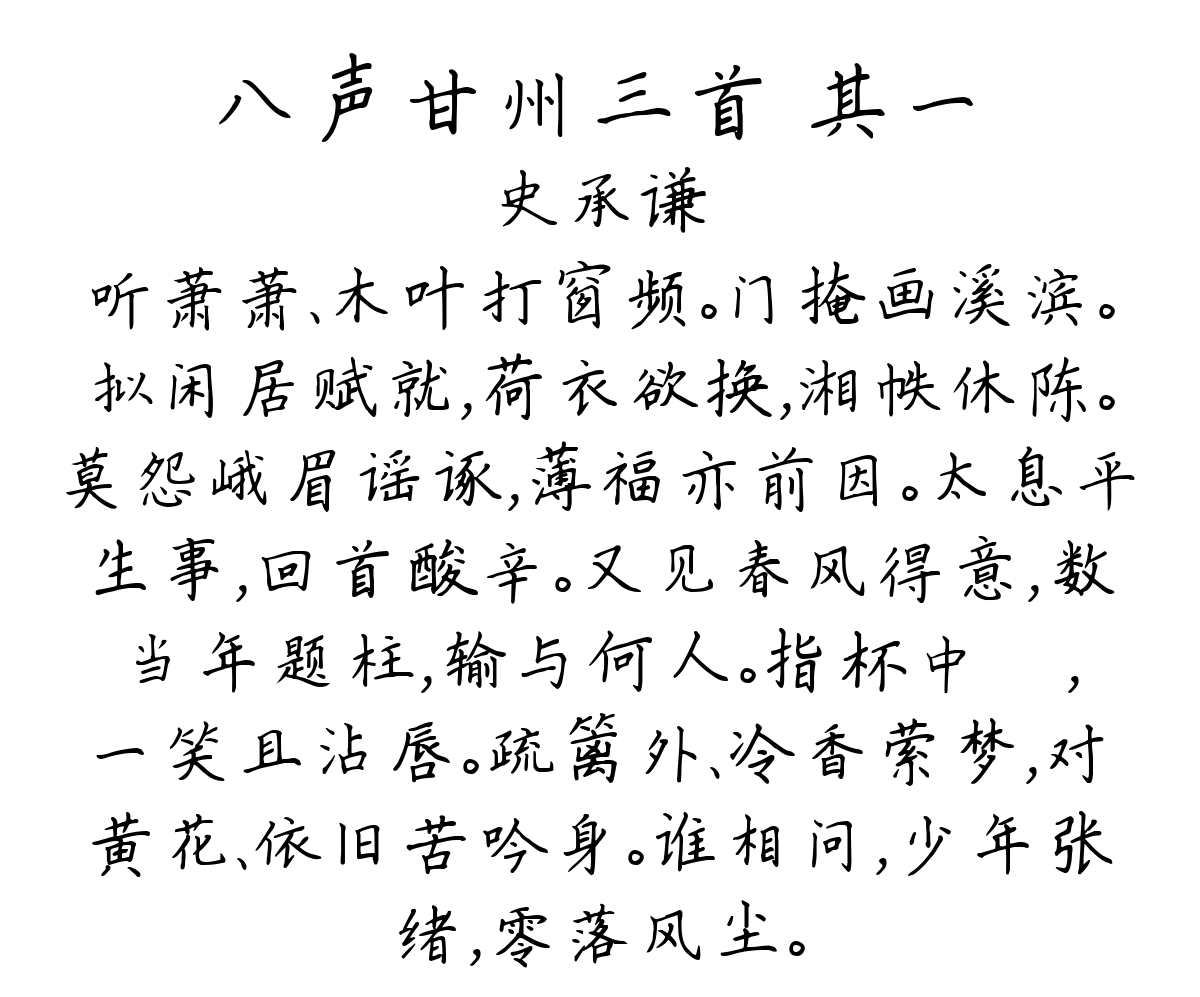 八声甘州三首 其一
史承谦
听萧萧、木叶打窗频。门掩画溪滨。
拟闲居赋就,荷衣欲换,湘帙休陈。
莫怨峨眉谣诼,薄福亦前因。太息平
生事,回首酸辛。又见春风得意,数
当年题柱,输与何人。指杯中 ,
一笑且沾唇。疏篱外、冷香萦梦,对
黄花、依旧苦吟身。谁相问,少年张
绪,零落风尘。